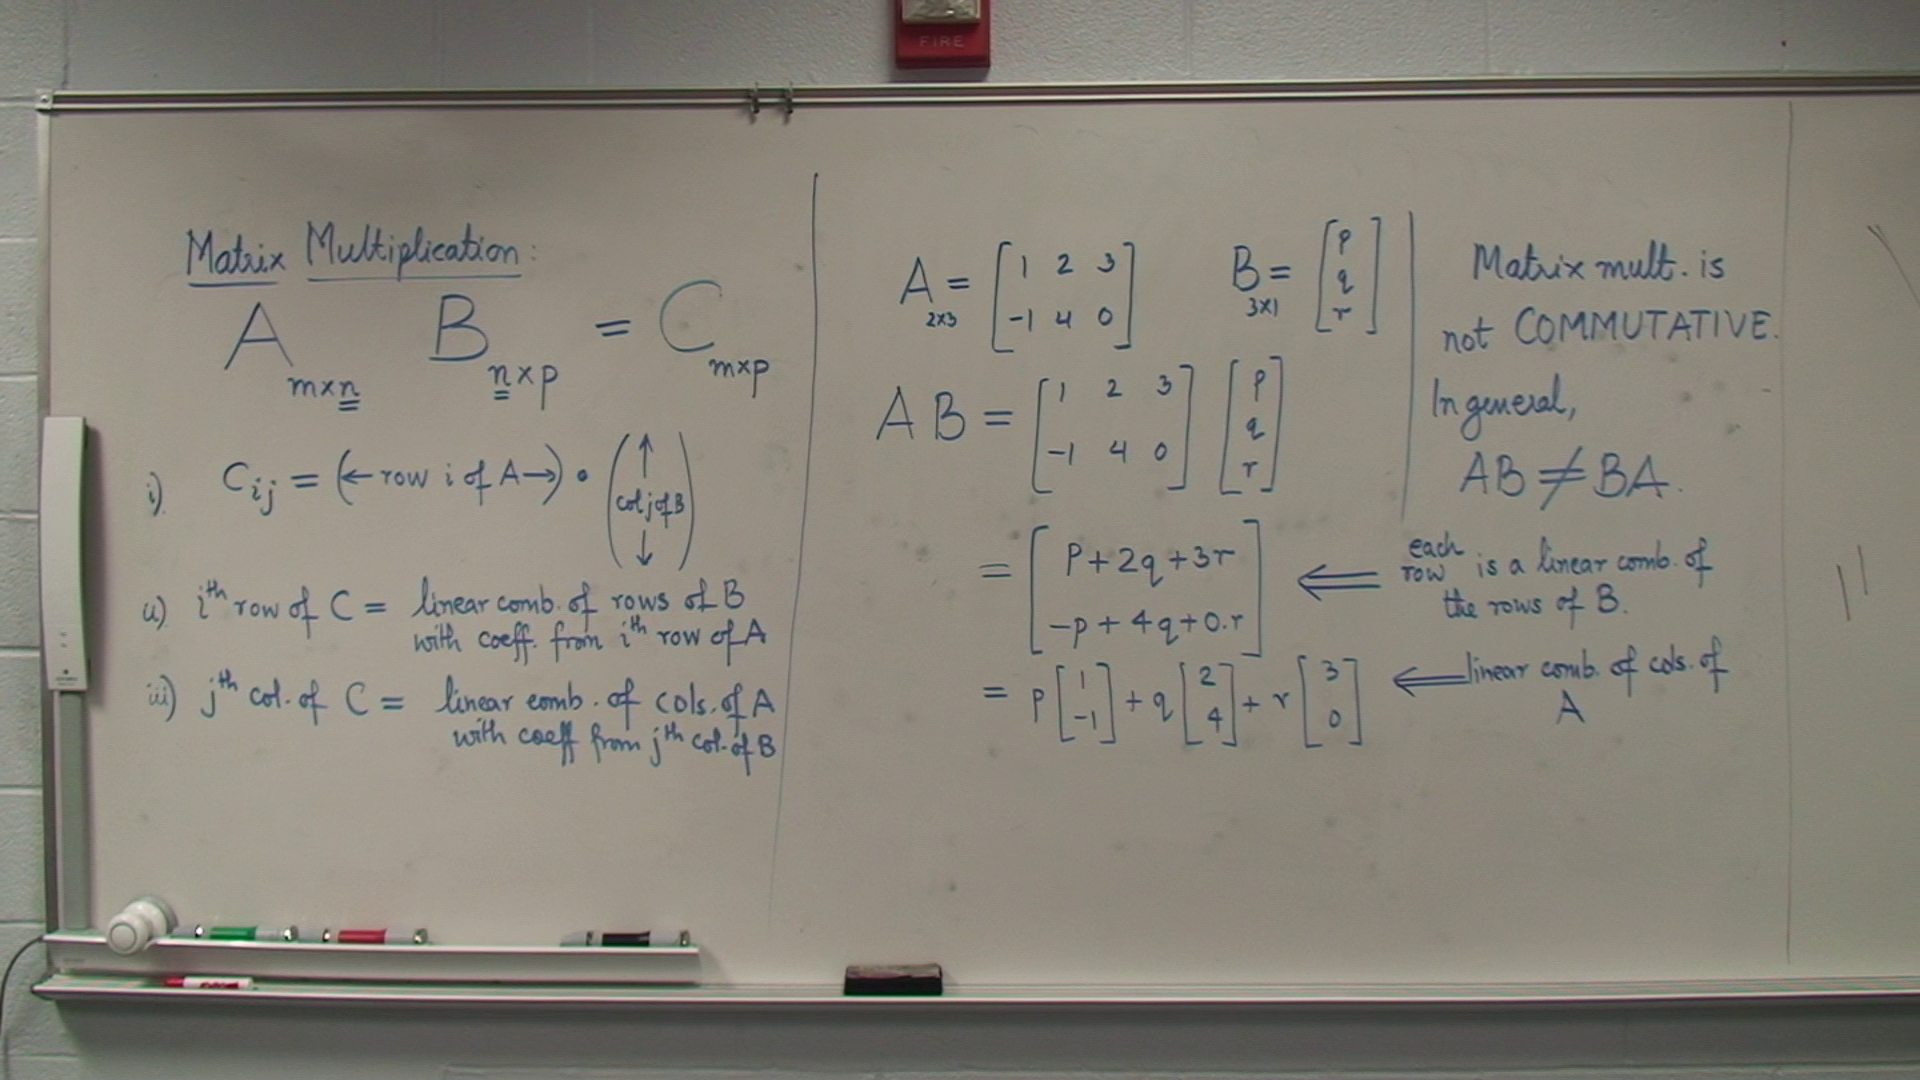 FIRE
Matrix Multiplication:
A m×n B n×p = C m×p
i). Cij = (← row i of A →) • (↑ col j of B ↓)
ii) i th row of C = linear comb. of rows of B
with coeff. from i th row of A
iii) j th col. of C = linear comb. of cols. of A
with coeff from j th col. of B
A 2×3 = [1 2 3
-1 4 0]
B 3×1 = [p
q
r]
AB = [1 2 3
-1 4 0] [p
q
r]
= [p+2q+3r
-p+4q+0.r]
⇐ each row is a linear comb. of
the rows of B.
= p[1
-1] + q[2
4] + r[3
0]
⇐ linear comb. of cols. of
A
Matrix mult. is
not COMMUTATIVE.
In general,
AB ≠ BA.